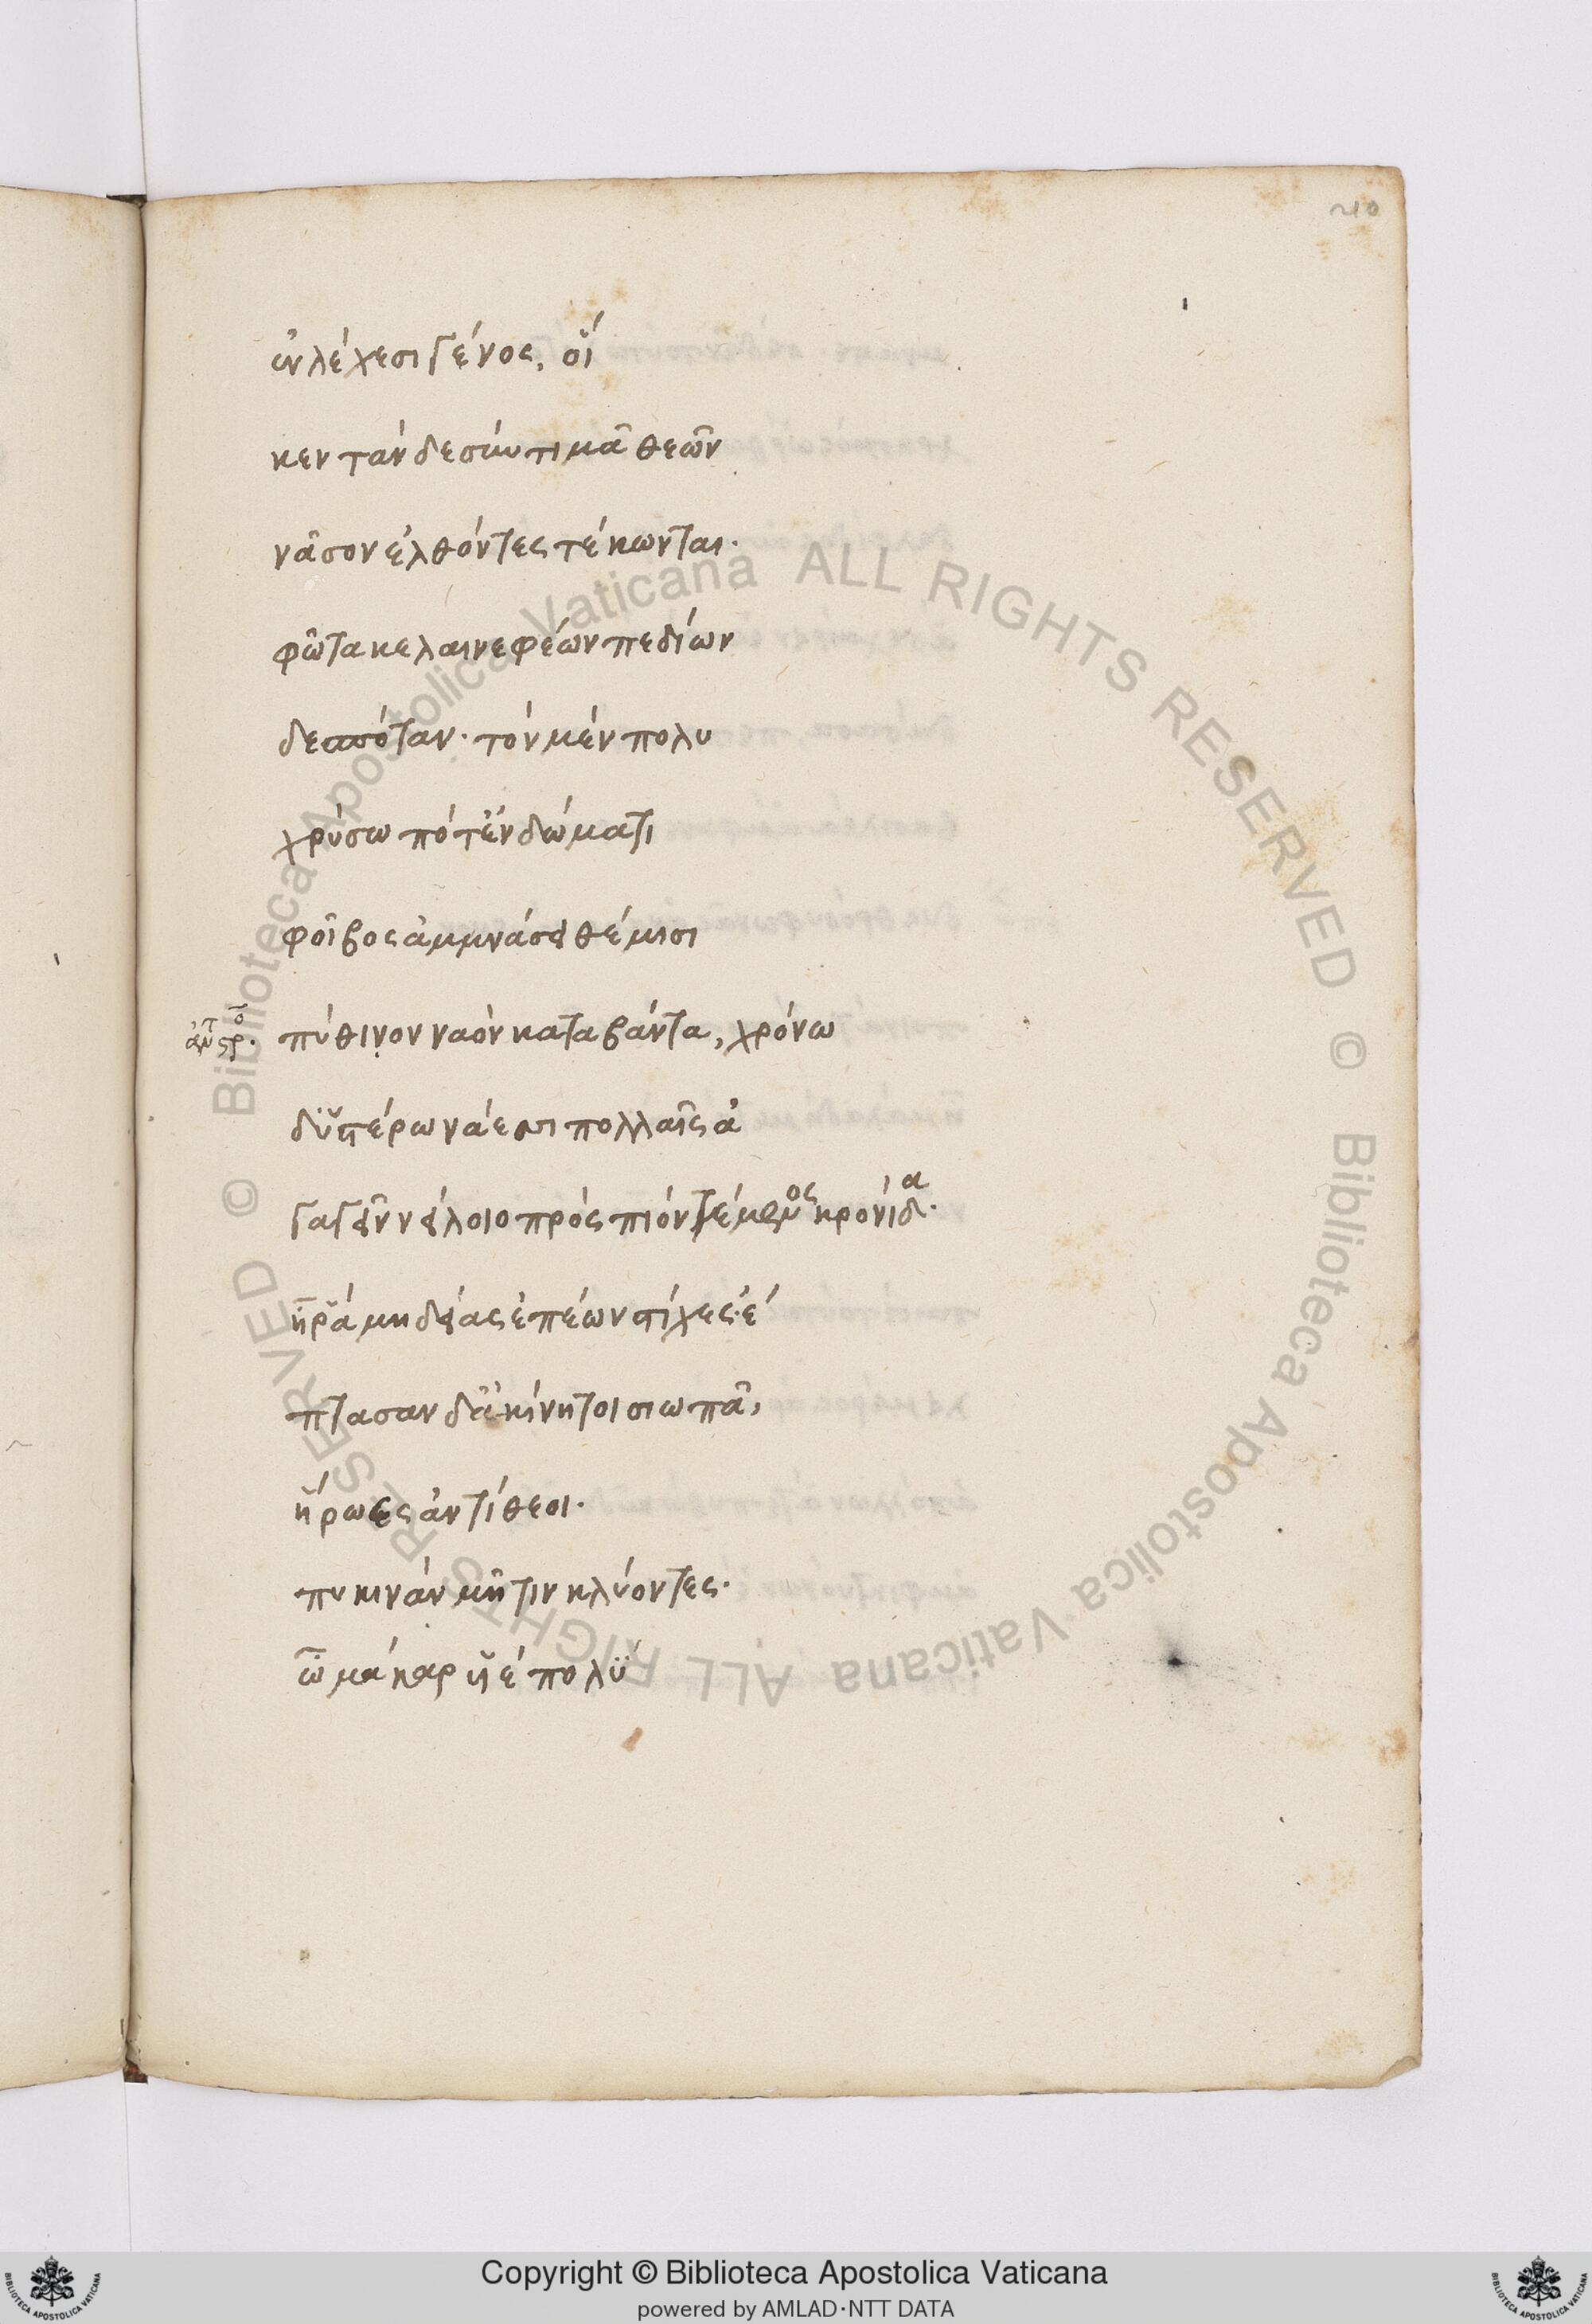 210
ἐν λέχεσι γένος, οἵ
κεν τάν δε σὺν τιμᾶ θεῶν
νᾶσον ἐλθόντες τέκωνται·
φῶτα κελαινεφέων πεδίων
δεσπόταν· τὸν μὲν πολυ
χρύσω πότ ἐν δώματι
φοῖβος ἀμμνάσει θέμισι
ἀντιστρο. πύθινον ναὸν καταβάντα, χρόνω
δ' ὑστέρω νάεσσι πολλαῖς ἀ
γαγεῖν νείλοιο πρὸς πιόν τέμενος κρονίδα.
ἦ ῥὰ μηδείας ἐπέων στίχες· ἔ
πτασαν δ' ἀκίνητοι σιωπᾶ,
ἥρωες ἀντίθεοι.
πυκινὰν μῆτιν κλύοντες.
ὦ μάκαρ υἱὲ πολϋ
Biblioteca Apostolica Vaticana ALL RIGHTS RESERVED © Biblioteca Apostolica Vaticana ALL RIGHTS RESERVED ©
Copyright © Biblioteca Apostolica Vaticana
powered by AMLAD·NTT DATA
BIBLIOTECA APOSTOLICA VATICANA
BIBLIOTECA APOSTOLICA VATICANA